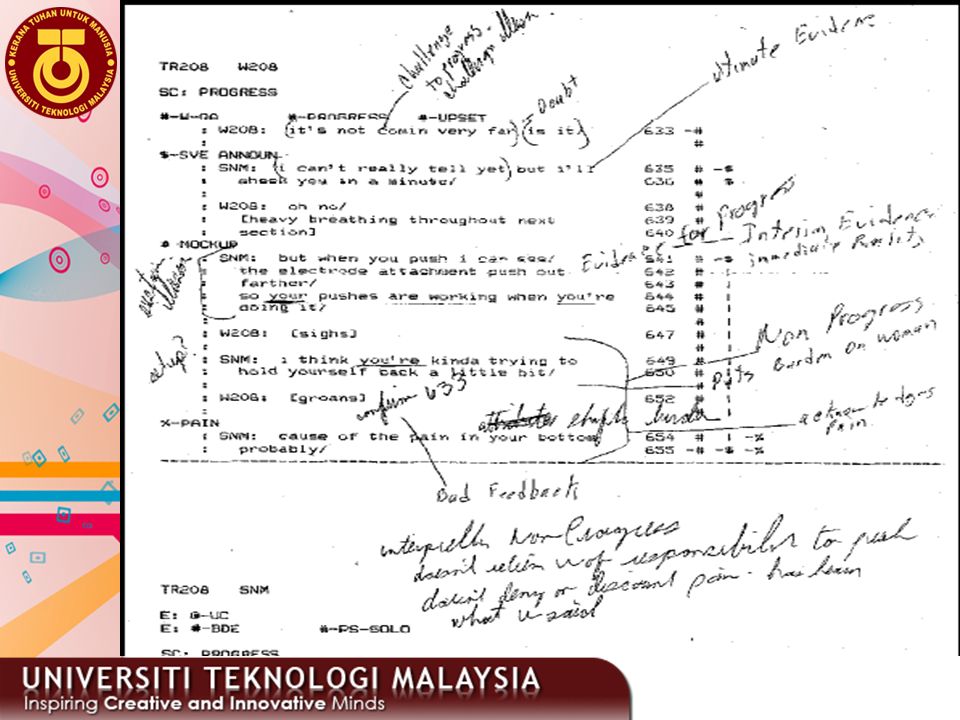 KERANA TUHAN UNTUK MANUSIA
UNIVERSITI TEKNOLOGI MALAYSIA
challenge
to progress.
challenge
ultimate Evidence
TR208 W208
SC: PROGRESS
= Doubt
#-W-QA #-PROGRESS #-UPSET
: W208: (it's not comin very far) (is it) 633 -#
: #
$-SVE ANNOUN
: SNM: (i can't really tell yet) but i'll 635 # -$
: check you in a minute/ 636 # $
: W208: oh no/ 638 #
: [heavy breathing throughout next 639 #
: section] 640 #
Evidence for Progress
Interim Evidence
immediate Results
# MOCKUP
: SNM: but when you push i can see/ 641 # -$
: the electrode attachment push out 642 #
: farther/ 643 #
: so your pushes are working when you're 644 #
: doing it/ 645 #
: W208: [sighs] 647 #
Non Progress
setup?
: SNM: i think you're kinda trying to 649 #
: hold yourself back a little bit/ 650 #
Puts burden on woman
: W208: [groans] 652 #
confirm 633
acknowledges
Pain.
%-PAIN
: SNM: cause of the pain in your bottom 654 # | -%
: probably/ 655 -# -$ -%
Bad Feedback
Non Progress
doesn't W of responsibility to push
doesn't deny or discount pain - has been
what W said
TR208 SNM
E: @-UC
E: #-BDE #-PS-SOLO
SC: PROGRESS
UNIVERSITI TEKNOLOGI MALAYSIA
Inspiring Creative and Innovative Minds